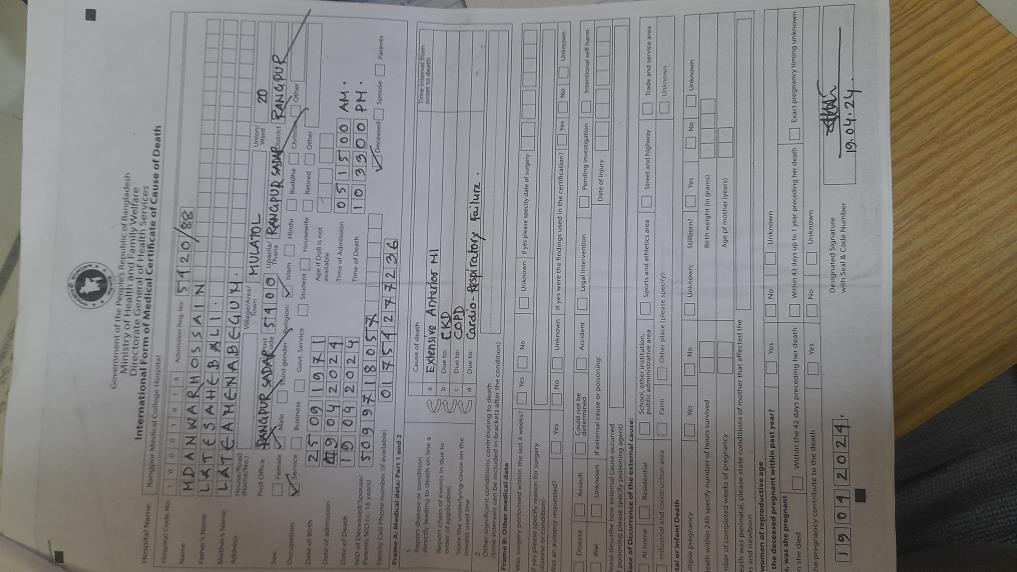 Government of the People's Republic of Bangladesh
Ministry of Health and Family Welfare
Directorate General of Health Services
International Form of Medical Certificate of Cause of Death
Hospital Name: Rangpur Medical College Hospital
Hospital Code No. 10001018 Admission Reg. No 5920/88
Name MD ANWAR HOSSAIN
Father's Name LATE SAHEB ALI.
Mother's Name LATE AMENA BEGUM.
Address House/Road (Name/No.) Village/Area/Town MULATOL Union/Ward 20
Post Office RANGPUR SADAR Post Code 5400 Upazila/Thana RANGPUR SADAR District RANGPUR
Sex: Female Male Third gender Religion: Islam Hindu Buddha Christian Other
Occupation: Service Business Govt. Service Student Housewife Retired Other
Date of Birth 25091971 Age if DoB is not available
Date of admission 19042024 Time of Admission 051500 AM.
Date of Death 19042024 Time of Death 103300 PM.
NID of Deceased/Spouse/Parents NID (< 18 years) 5099718057 Deceased Spouse Parents
Family Cell Phone number (if available) 01754277236
Frame A: Medical data: Part 1 and 2
1 Report disease or condition directly leading to death on line a
Report chain of events in due to order (if applicable)
State the underlying cause on the lowest used line
Cause of death Time interval from onset to death
a Extensive Anterior MI
b Due to: CKD
c Due to: COPD
d Due to: Cardio-Respiratory failure.
Other significant conditions contributing to death (time intervals can be included in brackets after the condition)
Frame B: Other medical data
Was surgery performed within the last 4 weeks? Yes No Unknown If yes please specify date of surgery
If yes please specify reason for surgery (disease or condition)
Was an autopsy requested? Yes No Unknown If yes were the findings used in the certification? Yes No Unknown
Disease Assault Could not be determined Accident Legal Intervention Pending investigation Intentional self harm
War Unknown If external cause or poisoning: Date of Injury
describe how external cause occurred (If poisoning please specify poisoning agent)
Place of Occurrence of the external cause:
At home Residential School, other institution, public administrative area Sports and athletics area Street and highway Trade and service area
Industrial and construction area Farm Other place (please specify): Unknown
Fetal or infant Death
Multiple pregnancy Yes No Unknown Stillborn? Yes No Unknown
death within 24h specify number of hours survived Birth weight (in grams)
number of completed weeks of pregnancy Age of mother (years)
death was perinatal, please state conditions of mother that affected the fetus and newborn
women of reproductive age
the deceased pregnant within past year? Yes No Unknown
was she pregnant
she died Within the 42 days preceding her death Within 43 days up to 1 year preceding her death Exact pregnancy timing unknown
the pregnancy contribute to the death Yes No Unknown
19042024.
19.04.24.
Designated Signature
with Seal & Code Number